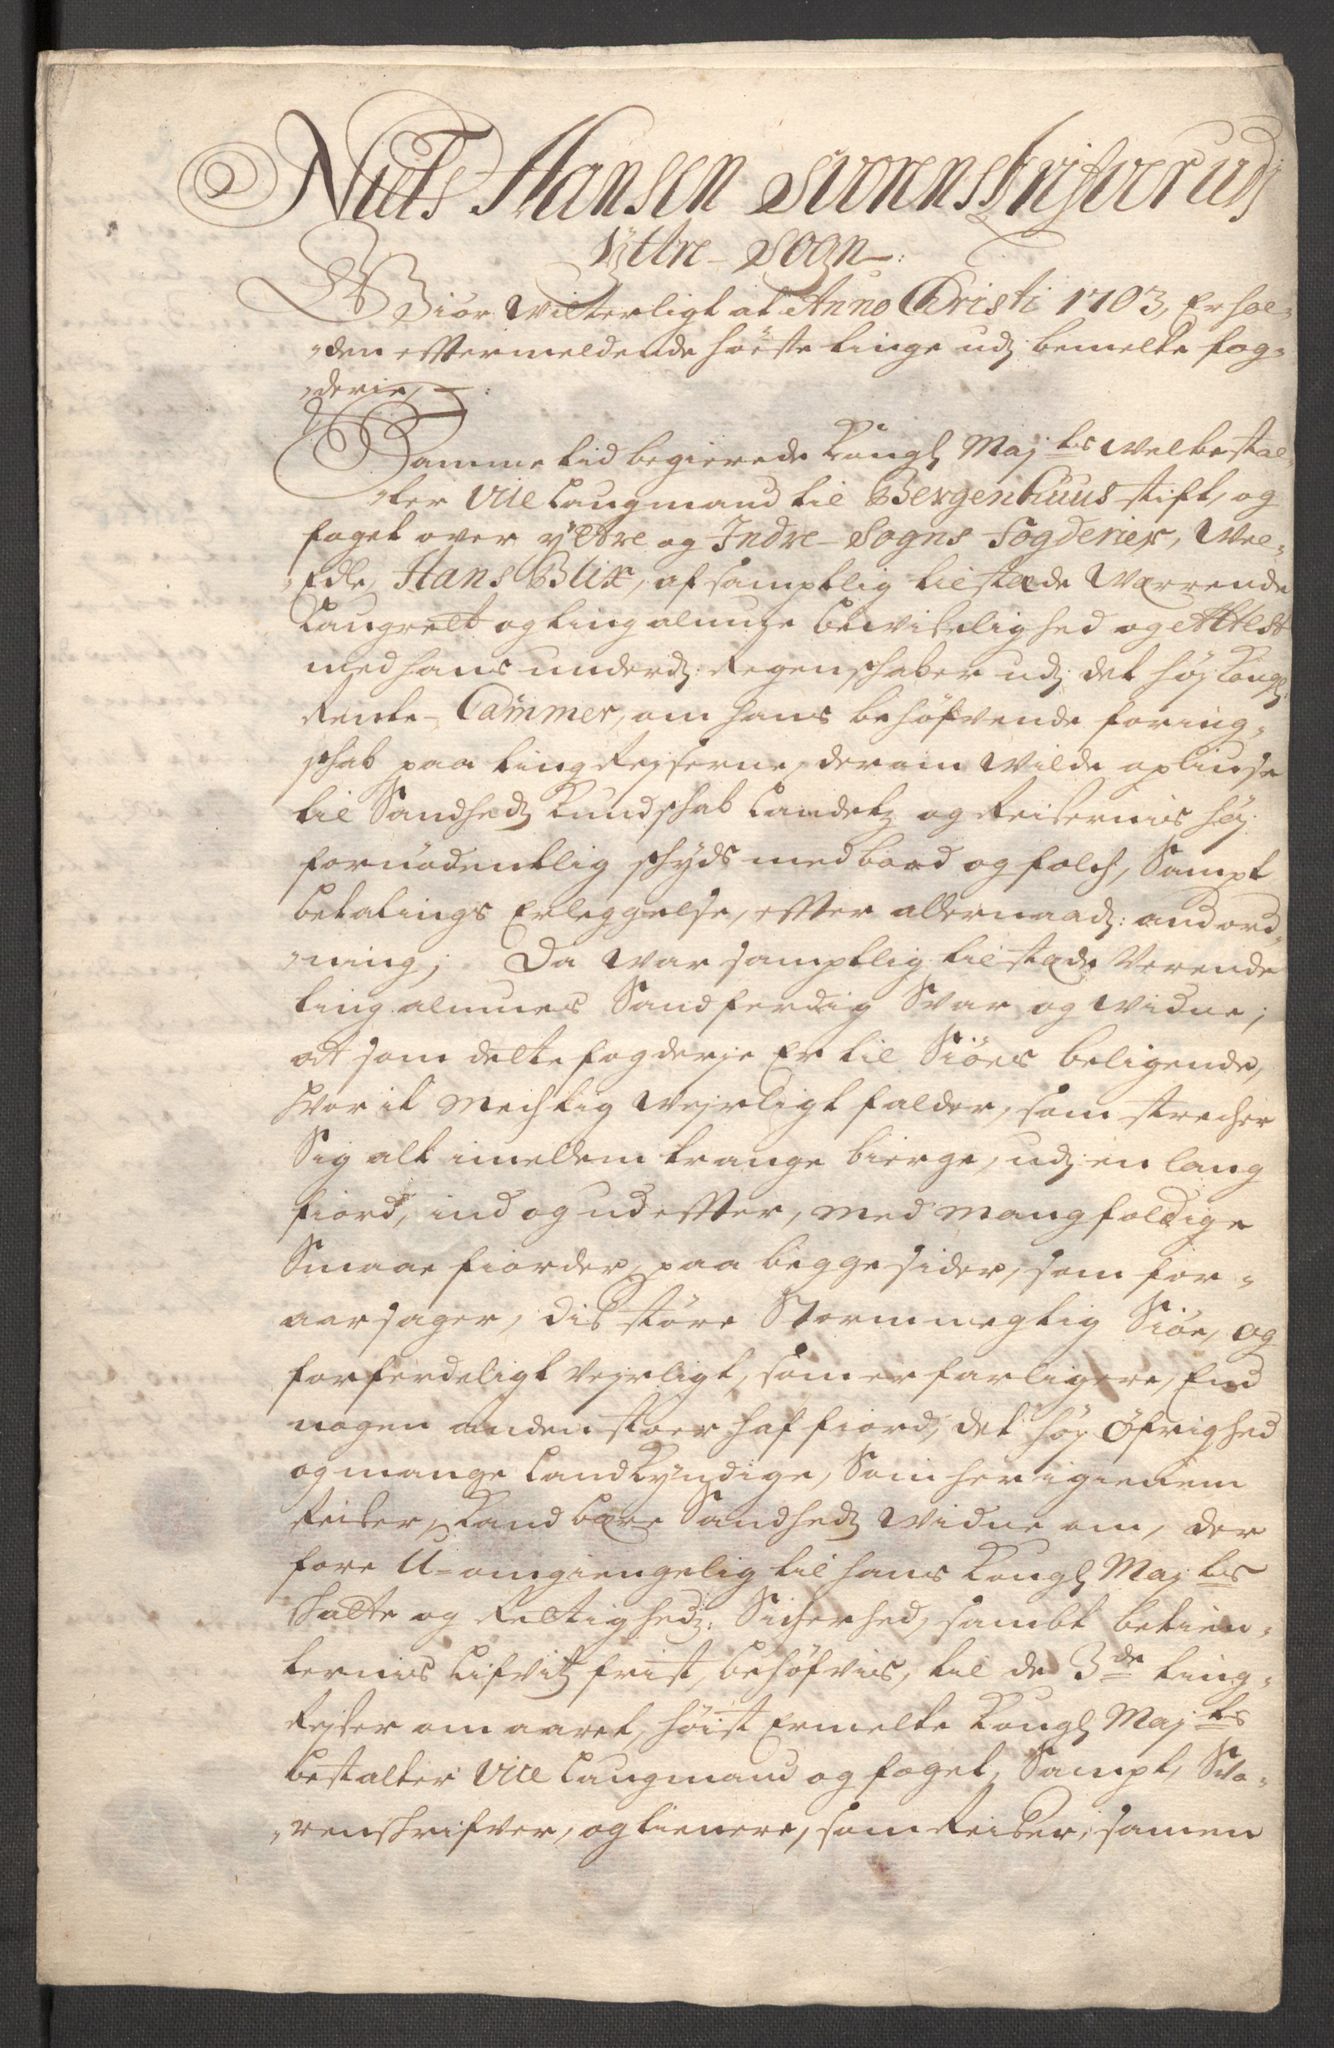 Niels Hansen Svorenskrifver udj
Yttre Sogn
Giör Vitterligt at Anno Christi 1703, Er hol-
den eftermeldende höste tinge udj bemelte fog-
derie,
Samme tid begierede Kongl Maj ts velbestal-
ter Vice Laugmand til Bergenhuus stift, og
foget over Yttre og Indre Sogns fogderier, Vel-
Edle, Hans Blix, af samptlig tilstæde værrende
Laugrett og ting almue bevislighed og Attest
med hans underd: Regenschaber udj det høj Kongl
Rente-Cammer, om hans behøfvende foring-
schab paa tingRejserne, derom vilde opliuse
til Sandhedz Kundschab Landetz og Reisernis høj
fornødentlig schyds med baad og folch, Sampt
betalings Erleggelse, efter allernaadj: anord-
ning; Da var samptlig tilstæde Verende
ting almues Sandferdig Svar og vidne;
at som dette fogderje Er til Siöes beligende,
hvor it mechtig vejrligt falder, som strecher
Sig alt imellem trange bierge, udj en lang
fiord, ind og ud efter, med mangfoldige
Smaae fiorder, paa begge sider, som for-
aarsager, dis störe Stormmegtig Siöe, og
forferdeligt vejrligt, som er farligere, End
nogen anden stoer haf fiord, det høj Øfrighed
og mange Landkyndige, Som her igienem
Reiser, Kand bære Sandhedz vidne om, der
fore U-omgiengelig til hans Kongl Maj ts
Skatte og Rettighedz: Sicherhed, sambt betien-
ternis Lifvitz frist, behøfvis, til de 3de ting-
Rejser om aaret, höist Ermelte Kongl Maj ts
bestalter Vice Laugmand og foget, Sampt, Svo-
renskrifver, og tienere, som Reiser, samen